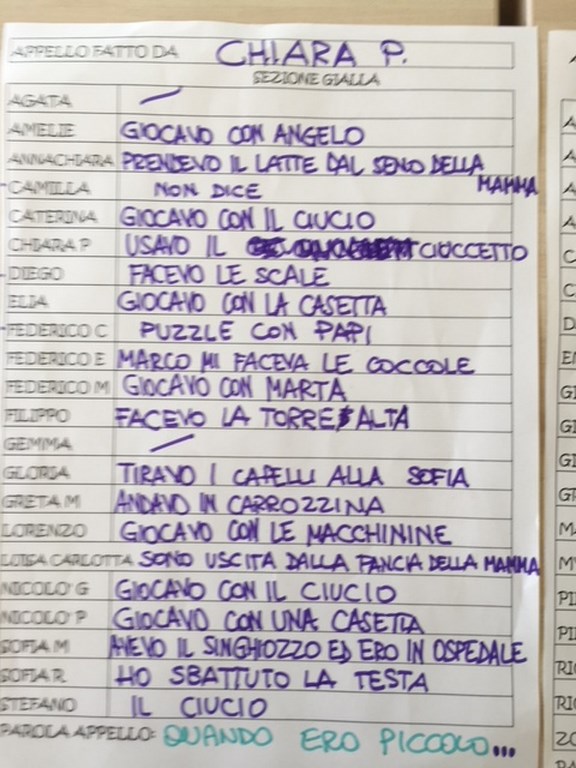 APPELLO FATTO DA CHIARA P.
SEZIONE GIALLA
AGATA
AMELIE GIOCAVO CON ANGELO
ANNACHIARA PRENDEVO IL LATTE DAL SENO DELLA MAMMA
CAMILLA NON DICE
CATERINA GIOCAVO CON IL CIUCIO
CHIARA P USAVO IL CIUCCETTO
DIEGO FACEVO LE SCALE
ELIA GIOCAVO CON LA CASETTA
FEDERICO C PUZZLE CON PAPI
FEDERICO E MARCO MI FACEVA LE COCCOLE
FEDERICO M GIOCAVO CON MARTA
FILIPPO FACEVO LA TORRE ALTA
GEMMA
GLORIA TIRAVO I CAPELLI ALLA SOFIA
GRETA M ANDAVO IN CARROZZINA
LORENZO GIOCAVO CON LE MACCHININE
LUISA CARLOTTA SONO USCITA DALLA PANCIA DELLA MAMMA
NICOLO' G GIOCAVO CON IL CIUCIO
NICOLO' P GIOCAVO CON UNA CASETTA
SOFIA M AVEVO IL SINGHIOZZO ED ERO IN OSPEDALE
SOFIA R. HO SBATTUTO LA TESTA
STEFANO IL CIUCIO
PAROLA APPELLO: QUANDO ERO PICCOLO...